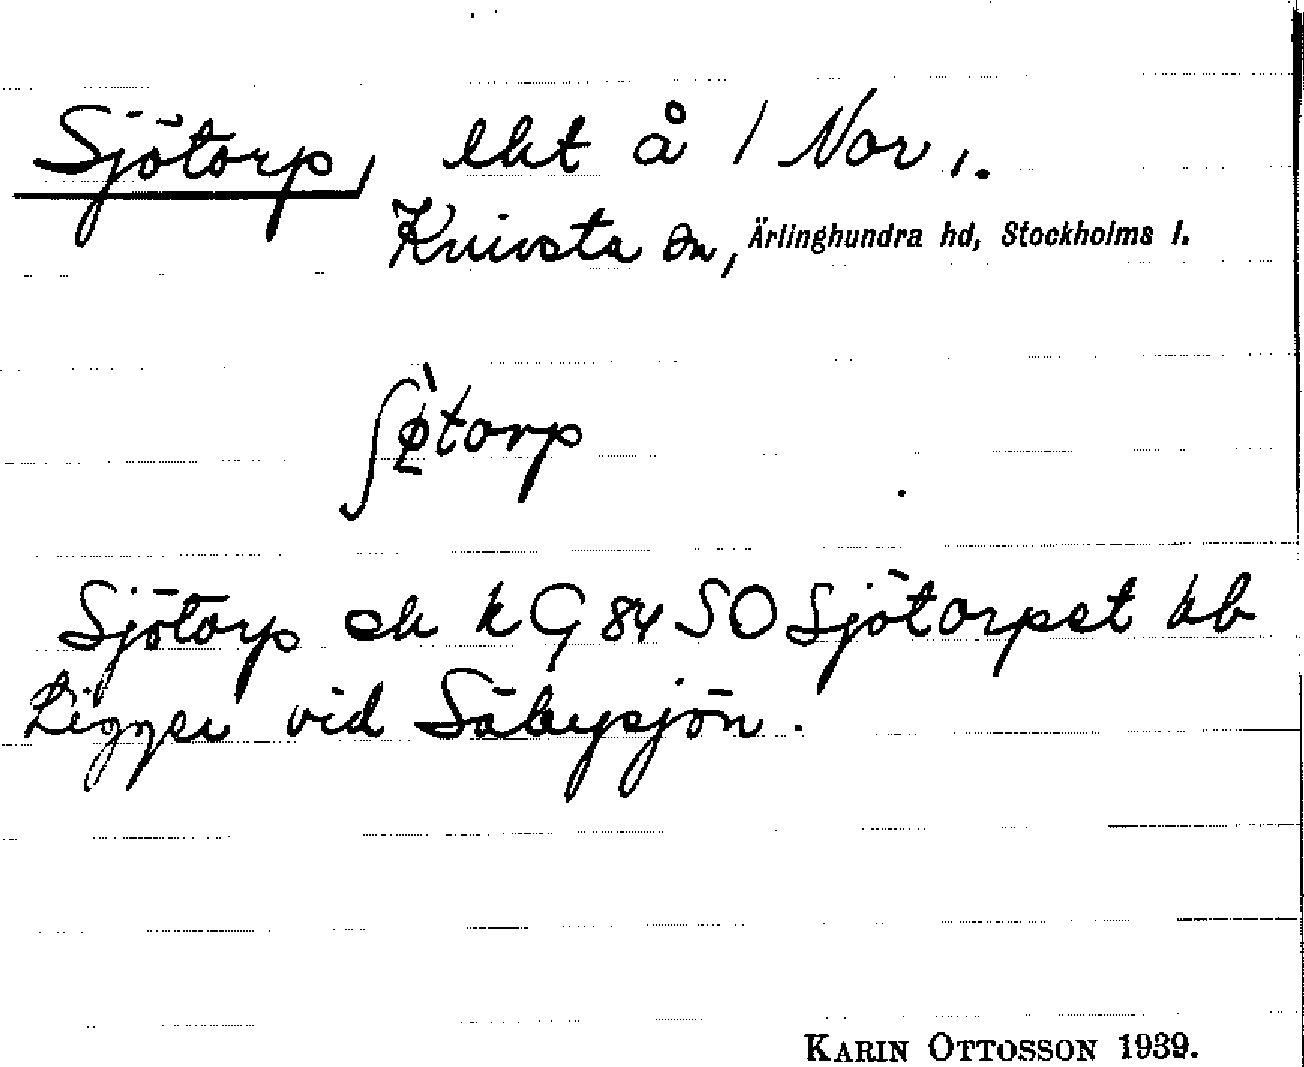 Sjötorp, lht å 1 Nor,.
Knivsta sn, Ärlinghundra hd, Stockholms l.
ʃø̀torp
Sjötorp ek kG 84 SO Sjötorpet hb
Ligger vid Säbysjön.
KARIN OTTOSSON 1939.